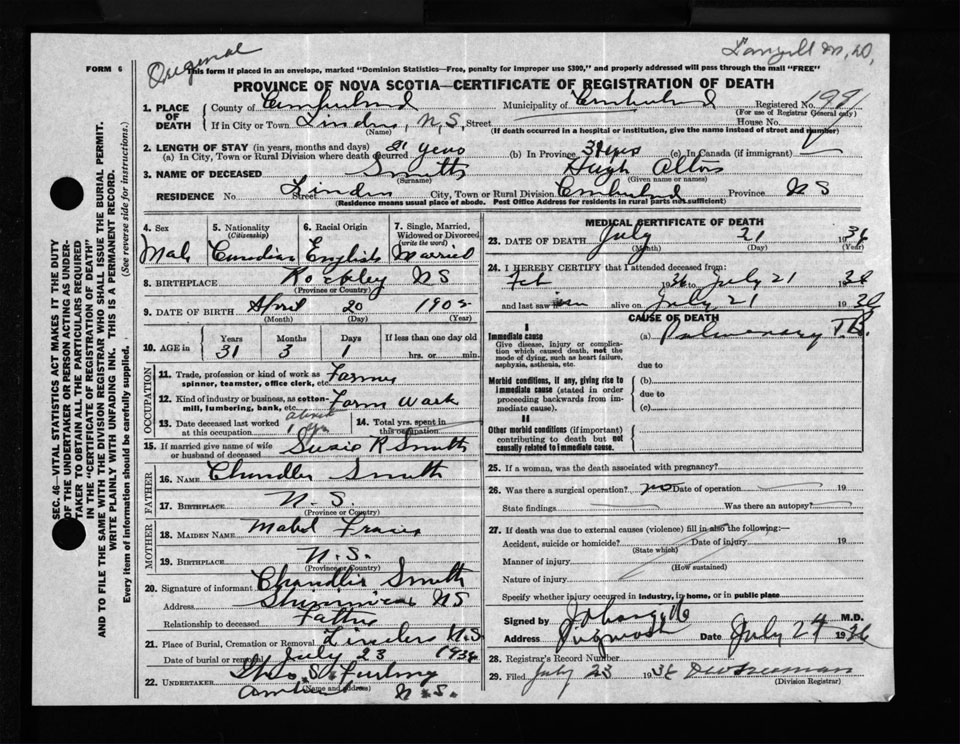 Original
FORM 6 This form if placed in an envelope, marked "Dominion Statistics—Free, penalty for improper use $300," and properly addressed will pass through the mail "FREE"
PROVINCE OF NOVA SCOTIA—CERTIFICATE OF REGISTRATION OF DEATH
1. PLACE OF DEATH County of Cumberland Municipality of Cumberland Registered No. 1991
(For use of Registrar General only)
If in City or Town Linden, N, S, Street House No.
(Name) (If death occurred in a hospital or institution, give name instead of street and number)
2. LENGTH OF STAY (in years, months and days)
(a) In City, Town or Rural Division where death occurred 21 years (b) In Province 31 yrs (c) In Canada (if immigrant)
3. NAME OF DECEASED Smith Hugh
(Surname) (Given name or names)
RESIDENCE No. Street Linden City, Town or Rural Division Cumberland Province NS
(Residence means usual place of abode. Post Office Address for residents in rural parts not sufficient)
4. Sex 5. Nationality (Citizenship) 6. Racial Origin 7. Single, Married, Widowed or Divorced (write the word)
Male Canadian English Married
8. BIRTHPLACE Rockley NS
(Province or Country)
9. DATE OF BIRTH April 20 190
(Month) (Day) (Year)
10. AGE in Years Months Days If less than one day old
31 3 1 hrs. or min.
OCCUPATION
11. Trade, profession or kind of work as spinner, teamster, office clerk, etc. Farmer
12. Kind of industry or business, as cotton-mill, lumbering, bank, etc. Farm Work
13. Date deceased last worked at this occupation about 1 yr
14. Total yrs. spent in this occupation
15. If married give name of wife or husband of deceased Susie R Smith
FATHER
16. NAME Chandler Smith
17. BIRTHPLACE N. S.
(Province or Country)
MOTHER
18. MAIDEN NAME Mabel
19. BIRTHPLACE N. S.
(Province or Country)
20. Signature of informant Chandler Smith
Address Shinimicas NS
Relationship to deceased Father
21. Place of Burial, Cremation or Removal Linden N.S
Date of burial or removal July 23 1936
22. UNDERTAKER
(Name and address) N. S.
MEDICAL CERTIFICATE OF DEATH
23. DATE OF DEATH July 21 1936
(Month) (Day) (Year)
24. I HEREBY CERTIFY that I attended deceased from:
Feb 1936 to July 21 1936
and last saw him alive on July 21 1936
CAUSE OF DEATH
I
Immediate cause (a) Pulmonary T.B.
Give disease, injury or complication which caused death, not the mode of dying, such as heart failure, asphyxia, asthenia, etc.
due to
Morbid conditions, if any, giving rise to immediate cause (stated in order proceeding backwards from immediate cause).
(b)
due to
(c)
II
Other morbid conditions (if important) contributing to death but not causally related to immediate cause.
25. If a woman, was the death associated with pregnancy?
26. Was there a surgical operation? no Date of operation 19
State findings Was there an autopsy?
27. If death was due to external causes (violence) fill in also the following:—
Accident, suicide or homicide? Date of injury 19
(State which)
Manner of injury
(How sustained)
Nature of injury
Specify whether injury occurred in industry, in home, or in public place
Signed by M.D.
Address Pugwash Date July 24 1936
28. Registrar's Record Number
29. Filed July 23 1936
(Division Registrar)
SEC. 46—VITAL STATISTICS ACT MAKES IT THE DUTY
OF THE UNDERTAKER OR PERSON ACTING AS UNDER-
TAKER TO OBTAIN ALL THE PARTICULARS REQUIRED
IN THE "CERTIFICATE OF REGISTRATION OF DEATH"
AND TO FILE THE SAME WITH THE DIVISION REGISTRAR WHO SHALL ISSUE THE BURIAL PERMIT.
WRITE PLAINLY WITH UNFADING INK. THIS IS A PERMANENT RECORD.
Every item of information should be carefully supplied. (See reverse side for instructions.)